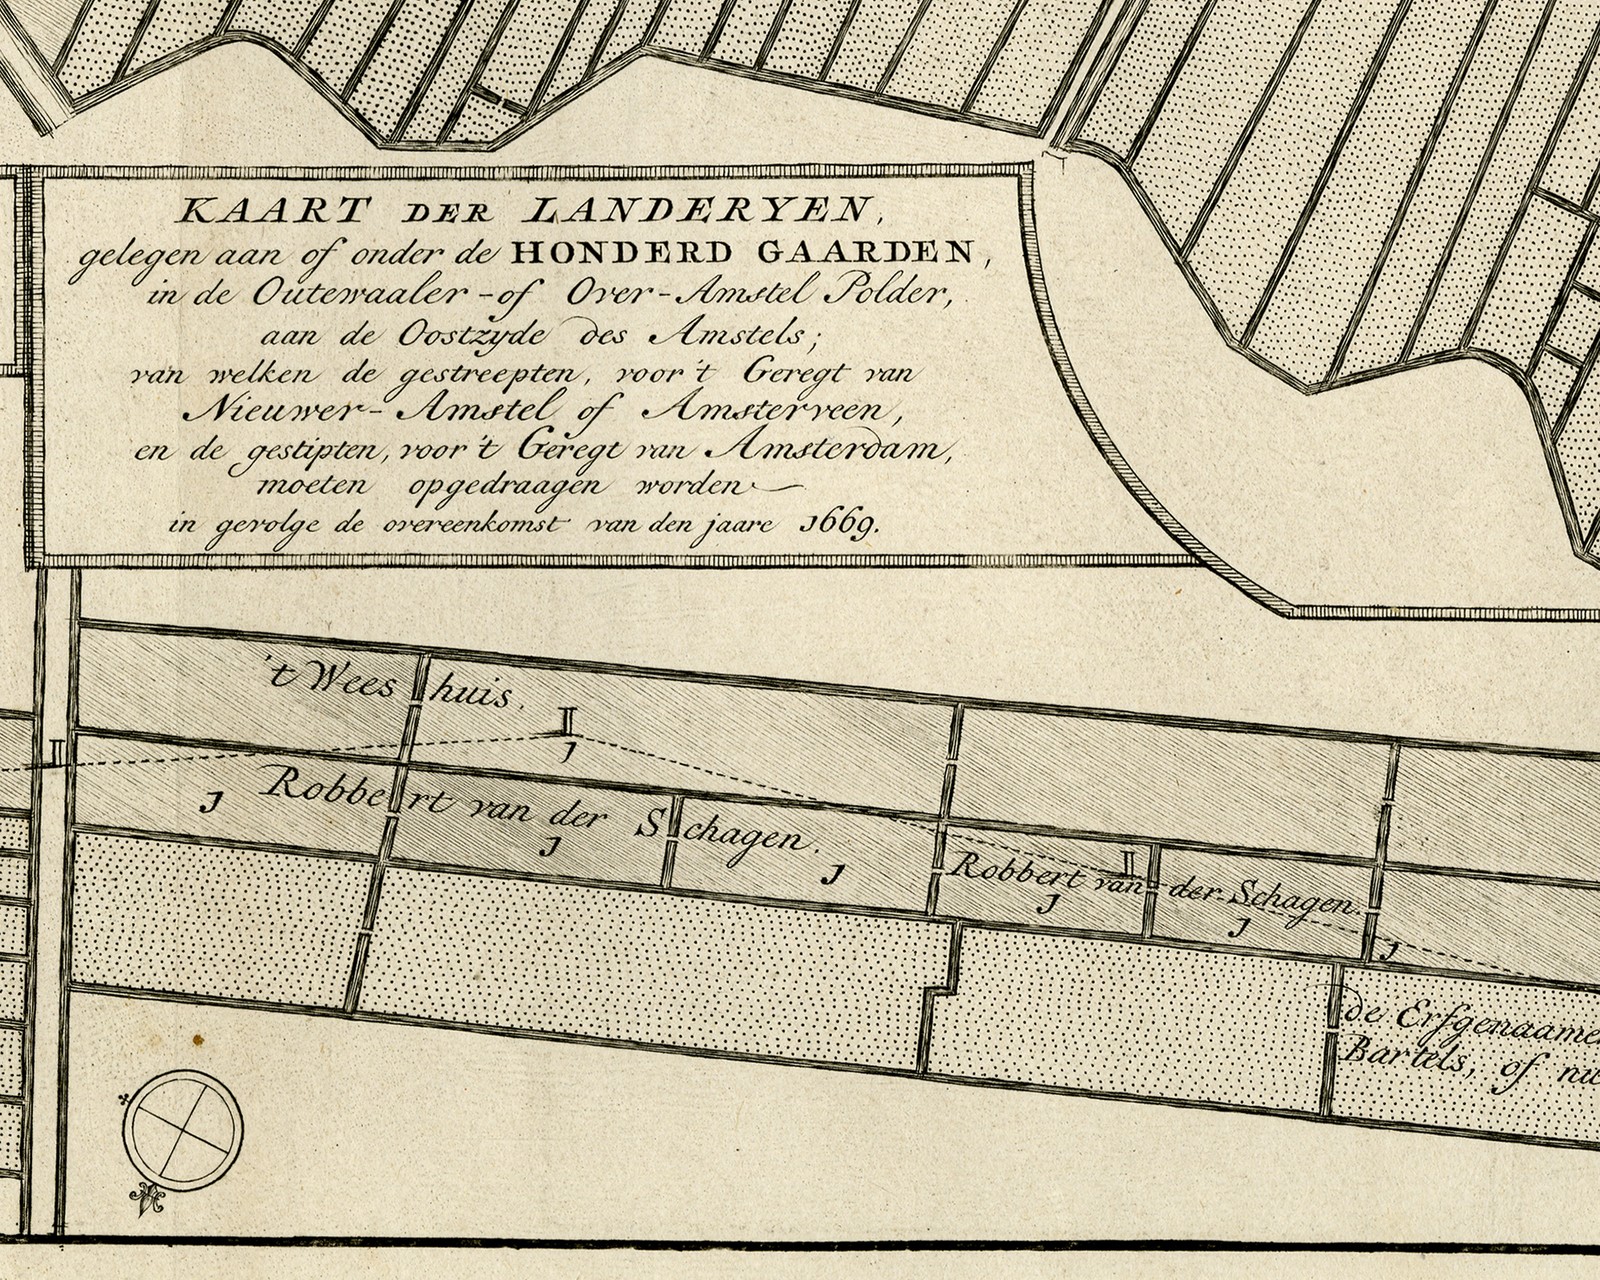 KAART DER LANDERYEN,
gelegen aan of onder de HONDERD GAARDEN,
in de Outewaaler-of Over-Amstel Polder,
aan de Oostzyde des Amstels;
van welken de gestreepten, voor 't Geregt van
Nieuwer-Amstel of Amsterveen,
en de gestipten, voor 't Geregt van Amsterdam,
moeten opgedraagen worden
in gevolge de overeenkomst van den jaare 1669.
't Weeshuis.
II
II
J
Robbert van der Schagen.
J
J
J
II
Robbert van der Schagen.
J
J
J
de Erfgenaame
Bartels, of nu